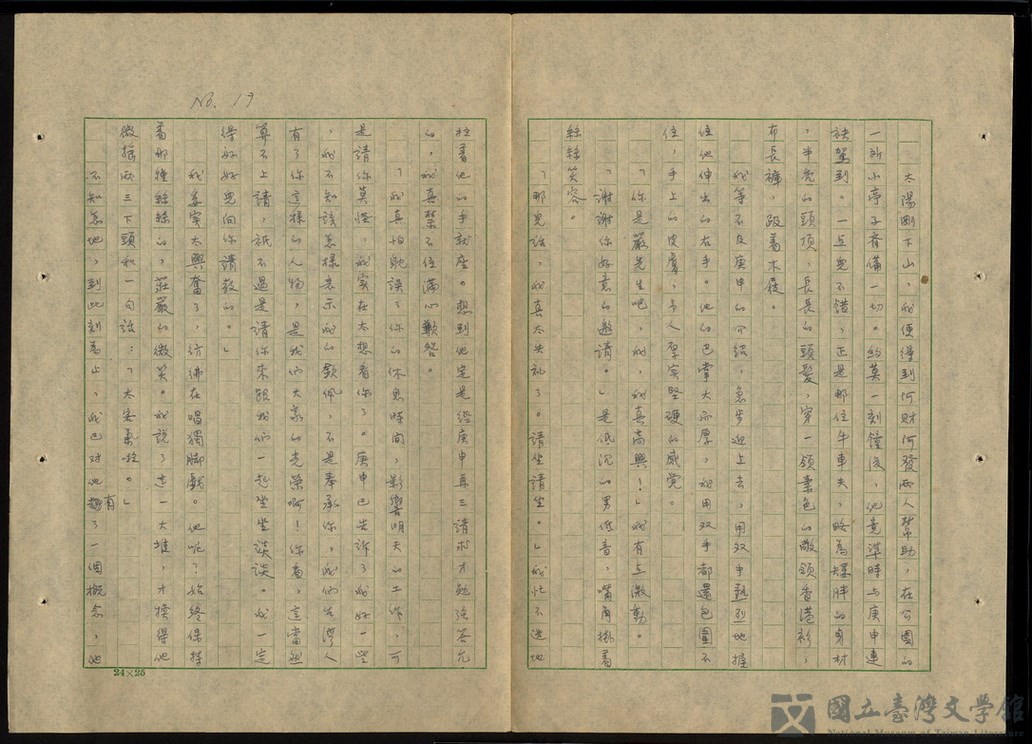 No. 19
太陽剛下山，我便得到何財何發兩人幫助，在公園的
一所小亭子齊備一切。約莫一刻鐘後，他竟準時与庚申連
袂駕到。一点兒不錯，正是那位牛車夫，略為矮胖的身材
，半禿的頭頂，長長的頭髮，穿一領素色的敞領香港衫，
布長褲，趿着木屐。
我等不及庚申的介紹，急步迎上去，用双手熱烈地握
住他伸出的右手。他的巴掌大而厚，我用双手都還包圍不
住，手上的皮膚，令人厚实堅硬的感覚。
「你是嚴先生吧，我，我真高興！」我有点激動。
「謝謝你好意的邀請。」是低沉的男低音，嘴角掛着
絲絲笑容。
「那兒話，我真太失礼了。請坐請坐。」我忙不迭地
拉着他的手就座。想到他定是經庚申再三請求才勉強答允
的，我真禁不住滿心歉咎。
「我真怕躭誤了你的休息時間，影響明天的工作，可
是請你莫怪，我实在太想看你了。庚申已告訴了我好一些
，我不知該怎樣表示我的欽佩，不是奉承你，我們台湾人
有了你這樣的人物，是我們大家的光榮啊！你看，這當然
算不上請，祇不過是請你來跟我們一起坐坐談談。我一定
得好好兒向你請教的。」
我委实太興奮了，彷彿在唱獨脚戲。他呢？始終保持
着那種絲絲的，莊嚴的微笑。我說了這一大堆，才換得他
微搖兩三下頭和一句話：「太客氣啦。」
不知怎地，到此刻為止，我已对他有了一個概念，他
24×25
國立臺灣文學館
National Museum of Taiwan Literature